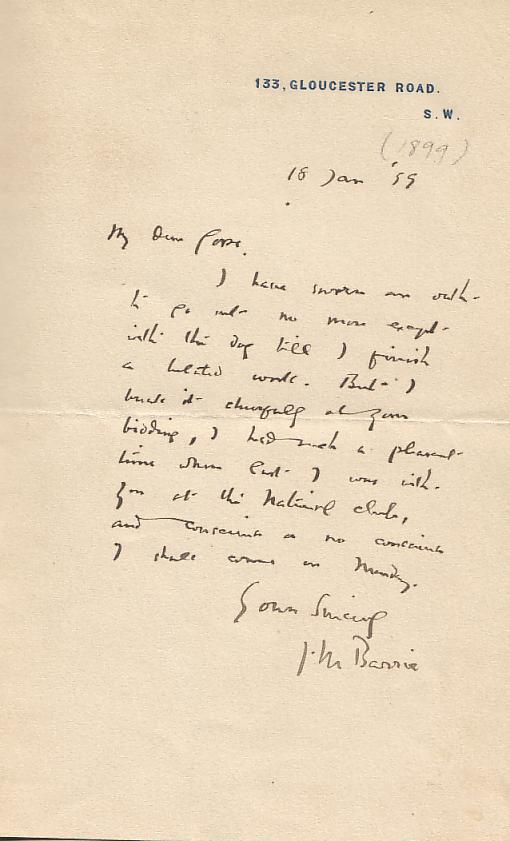 133, GLOUCESTER ROAD.
S.W.
(1899)
18 Jan '99
My dear Gosse,
I have sworn an oath
to go out no more except
with the dog till I finish
a belated work. But I
break it cheerfully at your
bidding, I had such a pleasant
time when last I was with
you at the National Club,
and conscience or no conscience
I shall come on Monday.
Yours Sincerely
J. M. Barrie